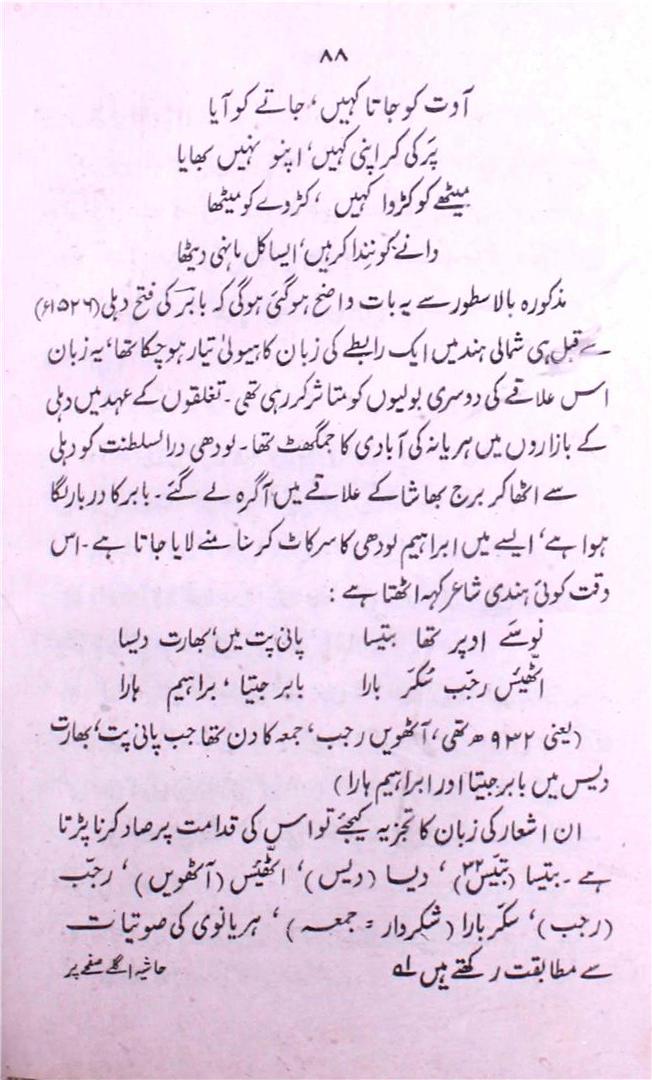 ۸۸
آوت کو جاتا کہیں، جاتے کو آیا
پَر کی کر اپنی کہیں، اپنو نہیں بھایا
میٹھے کو کڑوا کہیں، کڑوے کو میٹھا
دانے کو نِندا کرہیں، ایسا کل ماہنی دیٹھا
مذکورہ بالا سطور سے یہ بات واضح ہوگئی ہوگی کہ بابر کی فتح دہلی (۱۵۲۶ء)
سے قبل ہی شمالی ہند میں ایک رابطے کی زبان کا ہیولیٰ تیار ہوچکا تھا، یہ زبان
اس علاقے کی دوسری بولیوں کو متاثر کر رہی تھی۔ تغلقوں کے عہد میں دہلی
کے بازاروں میں ہریانہ کی آبادی کا جمگھٹ تھا۔ لودھی درالسلطنت کو دہلی
سے اٹھا کر برج بھاشا کے علاقے میں آگرہ لے گئے۔ بابر کا دربار لگا
ہوا ہے، ایسے میں ابراہیم لودھی کا سر کاٹ کر سامنے لایا جاتا ہے۔ اس
وقت کوئی ہندی شاعر کہہ اٹھتا ہے :
نو سَے اوپر تھا بتیسا پانی پت میں بھارت دیسا
اٹھیّں رجّب سُکّر بارا بابر جیتا، براہیم ہارا
(یعنی ۹۳۲ھ تھی، آٹھویں رجب، جمعہ کا دن تھا جب پانی پت، بھارت
دیس میں بابر جیتا اور ابراہیم ہارا)
ان اشعار کی زبان کا تجزیہ کیجئے تو اس کی قدامت پر صاد کرنا پڑتا
ہے۔ بتیسا (بتّیس ۳۲)، دیسا (دیس)، اٹھیّس (آٹھویں)، رجّب
(رجب)، سکّر بارا (شکروار = جمعہ)، ہریانوی کی صوتیات
سے مطابقت رکھتے ہیں ؎۱ حاشیہ اگلے صفحے پر